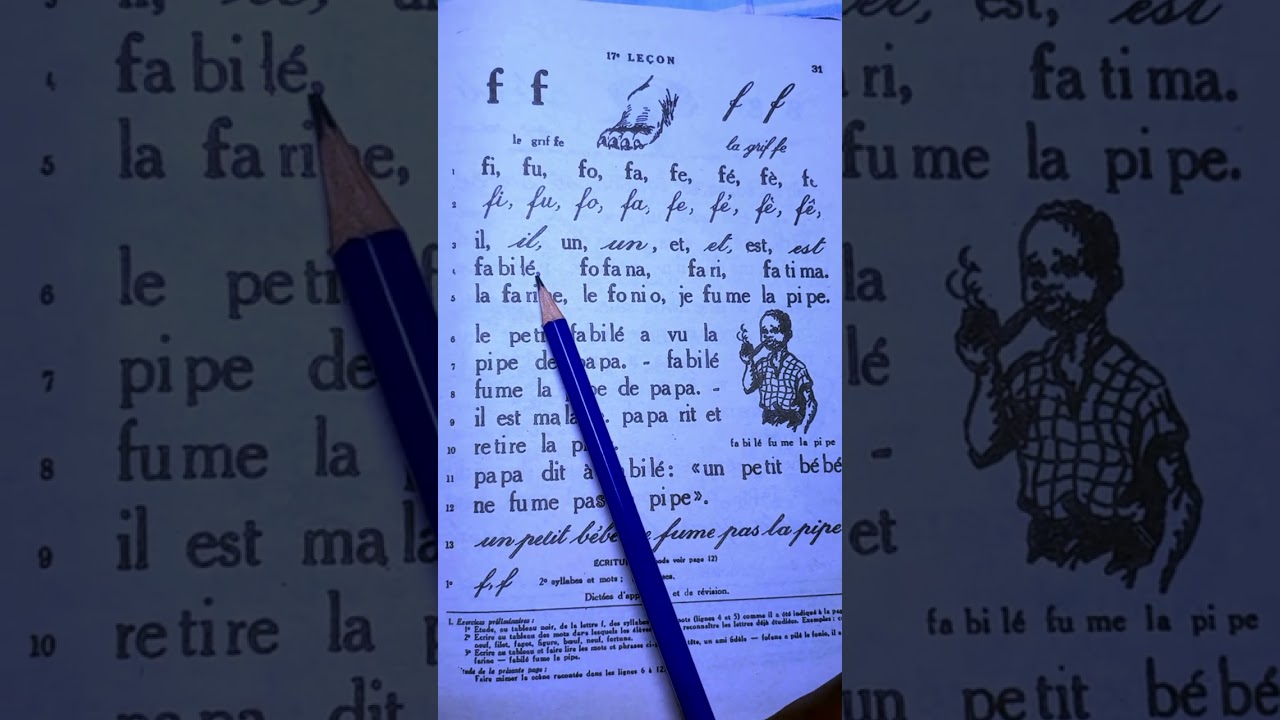 17e LEÇON
31
f f
f f
le grif fe
la grif fe
1 fi, fu, fo, fa, fe, fé, fè,
2 fi, fu, fo, fa, fe, fé, fè, fê,
3 il, il, un, un, et, et, est, est
4 fa bi lé, fo fa na, fa ri, fa ti ma.
5 la fa ri e, le fo ni o, je fu me la pi pe.
6 le peti fa bi lé a vu la
7 pi pe de pa pa. - fa bi lé
8 fu me la pe de pa pa. -
9 il est ma la . pa pa rit et
10 re ti re la p .
fa bi lé fu me la pi pe
11 pa pa dit à bi lé : «un pe tit bé bé
12 ne fu me pas pi pe».
13 un petit bébé e fume pas la pipe
ÉCRITU voir page 12)
1° f, f 2° syllabes et mots ;
Dictées d'app et de révision.
1. Exercices préliminaires :
1° Étude, au tableau noir, de la lettre f, des syllabes (lignes 4 et 5) comme il a été indiqué à la
2° Écrire au tableau des mots dans lesquels les élèves reconnaître les lettres déjà étudiées. Exemples :
neuf, filet, fagot, figure, bœuf, neuf, fortune.
3° Écrire au tableau et faire lire les mots et phrases tête, un ami fidèle — fofana a pilé le fonio, il a
farine — fabilé fume la pipe.
de de la présente page :
Faire mimer la scène racontée dans les lignes 6 à 12.